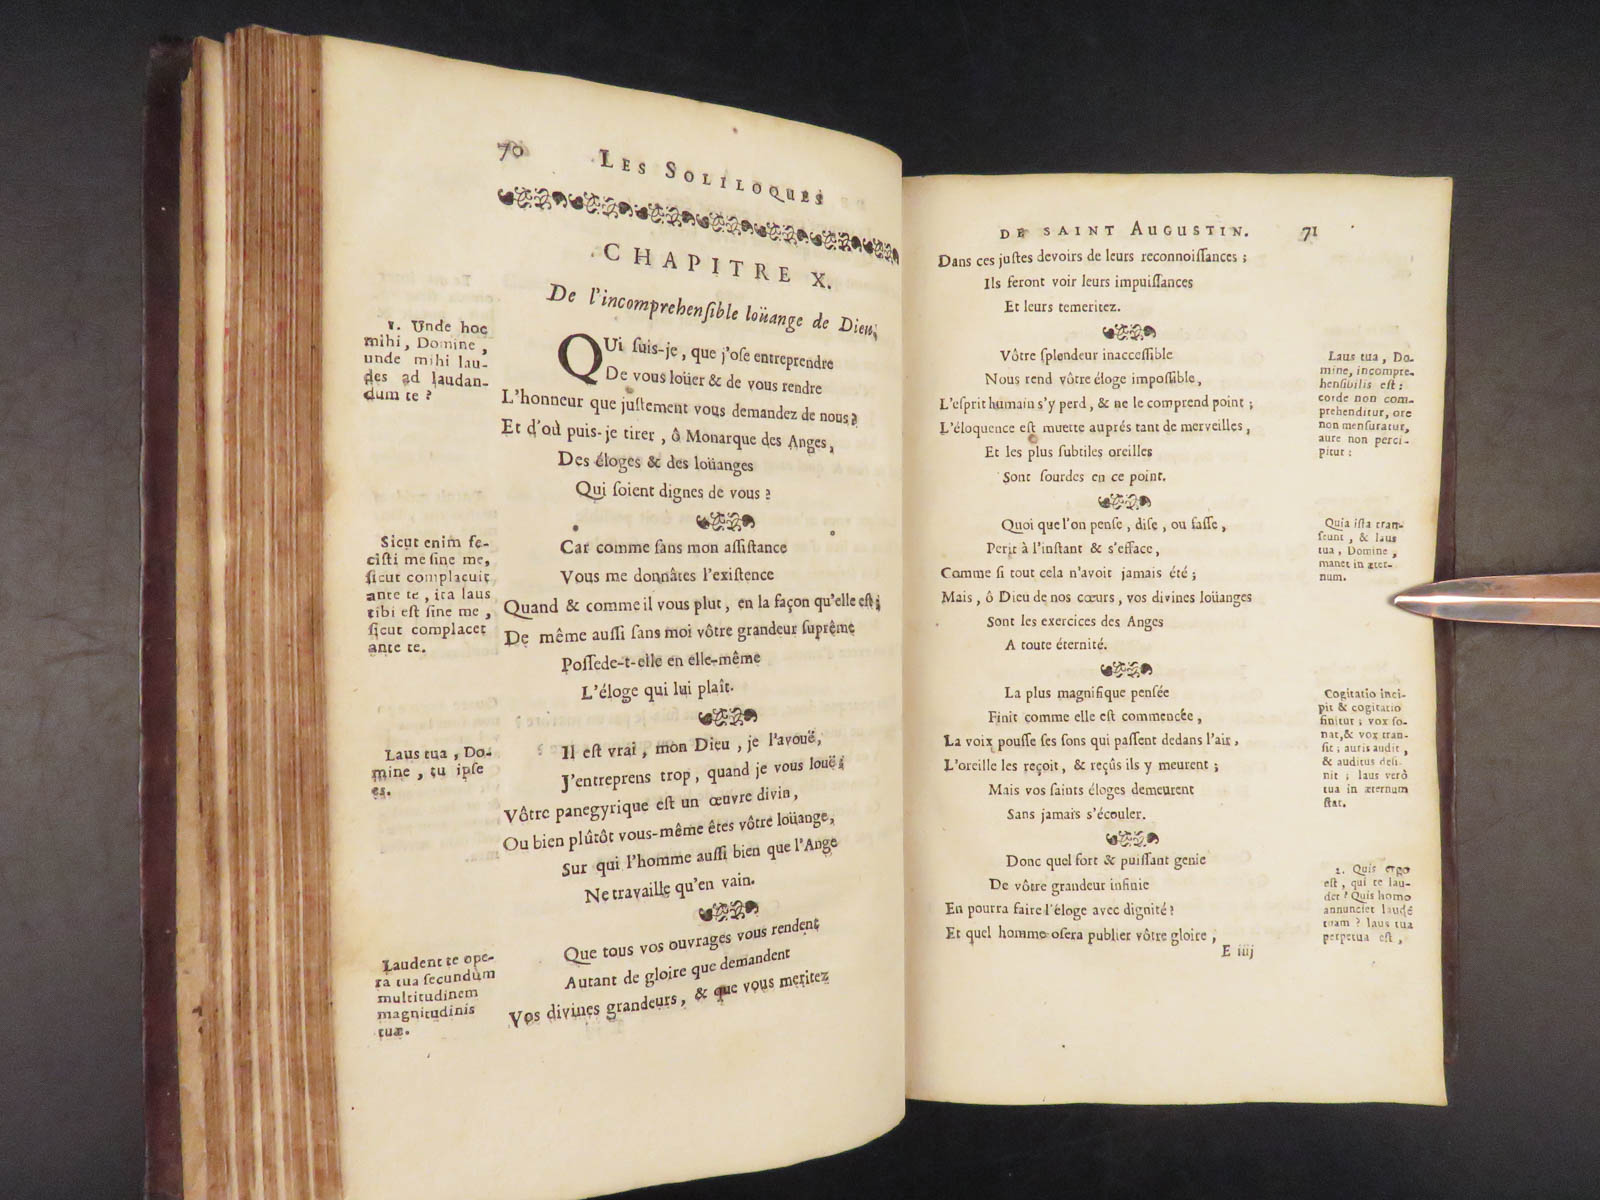 70
LES SOLILOQUES
CHAPITRE X.
De l'incomprehenſible loüange de Dieu.
1. Unde hoc
mihi, Domine,
unde mihi lau-
des ad laudan-
dum te?
QUi ſuis-je, que j'oſe entreprendre
De vous loüer & de vous rendre
L'honneur que juſtement vous demandez de nous?
Et d'où puis-je tirer, ô Monarque des Anges,
Des éloges & des loüanges
Qui ſoient dignes de vous?
Sicut enim fe-
ciſti me ſine me,
ſicut complacuit
ante te, ita laus
tibi eſt ſine me,
ſicut complacet
ante te.
Car comme ſans mon aſſiſtance
Vous me donnâtes l'exiſtence
Quand & comme il vous plut, en la façon qu'elle eſt;
De même auſſi ſans moi vôtre grandeur ſuprême
Poſſede-t-elle en elle-même
L'éloge qui lui plaît.
Laus tua, Do-
mine, tu ipſe
es.
Il eſt vrai, mon Dieu, je l'avouë,
J'entreprens trop, quand je vous louë;
Vôtre panegyrique eſt un œuvre divin,
Ou bien plûtôt vous-même êtes vôtre loüange,
Sur qui l'homme auſſi bien que l'Ange
Ne travaille qu'en vain.
Laudent te ope-
ra tua ſecundum
multitudinem
magnitudinis
tuæ.
Que tous vos ouvrages vous rendent
Autant de gloire que demandent
Vos divines grandeurs, & que vous meritez
DE SAINT AUGUSTIN.
71
Dans ces juſtes devoirs de leurs reconnoiſſances;
Ils feront voir leurs impuiſſances
Et leurs temeritez.
Vôtre ſplendeur inacceſſible
Nous rend vôtre éloge impoſſible,
L'eſprit humain s'y perd, & ne le comprend point;
L'éloquence eſt muette auprés tant de merveilles,
Et les plus ſubtiles oreilles
Sont ſourdes en ce point.
Laus tua, Do-
mine, incompre-
henſibilis eſt:
corde non com-
prehenditur, ore
non menſuratur,
aure non perci-
pitur:
Quoi que l'on penſe, diſe, ou faſſe,
Perit à l'inſtant & s'efface,
Comme ſi tout cela n'avoit jamais été;
Mais, ô Dieu de nos cœurs, vos divines loüanges
Sont les exercices des Anges
A toute éternité.
Quia iſta tran-
ſeunt, & laus
tua, Domine,
manet in æter-
num.
La plus magnifique penſée
Finit comme elle eſt commencée,
La voix pouſſe ſes ſons qui paſſent dedans l'air,
L'oreille les reçoit, & reçûs ils y meurent;
Mais vos ſaints éloges demeurent
Sans jamais s'écouler.
Cogitatio inci-
pit & cogitatio
finitur; vox ſo-
nat, & vox tran-
ſit; auris audit,
& auditus deſi-
nit; laus verò
tua in æternum
ſtat.
Donc quel fort & puiſſant genie
De vôtre grandeur infinie
En pourra faire l'éloge avec dignité?
Et quel homme oſera publier vôtre gloire,
2. Quis ergo
eſt, qui te lau-
det? Quis homo
annunciet laudē
tuam? laus tua
perpetua eſt,
E iiij